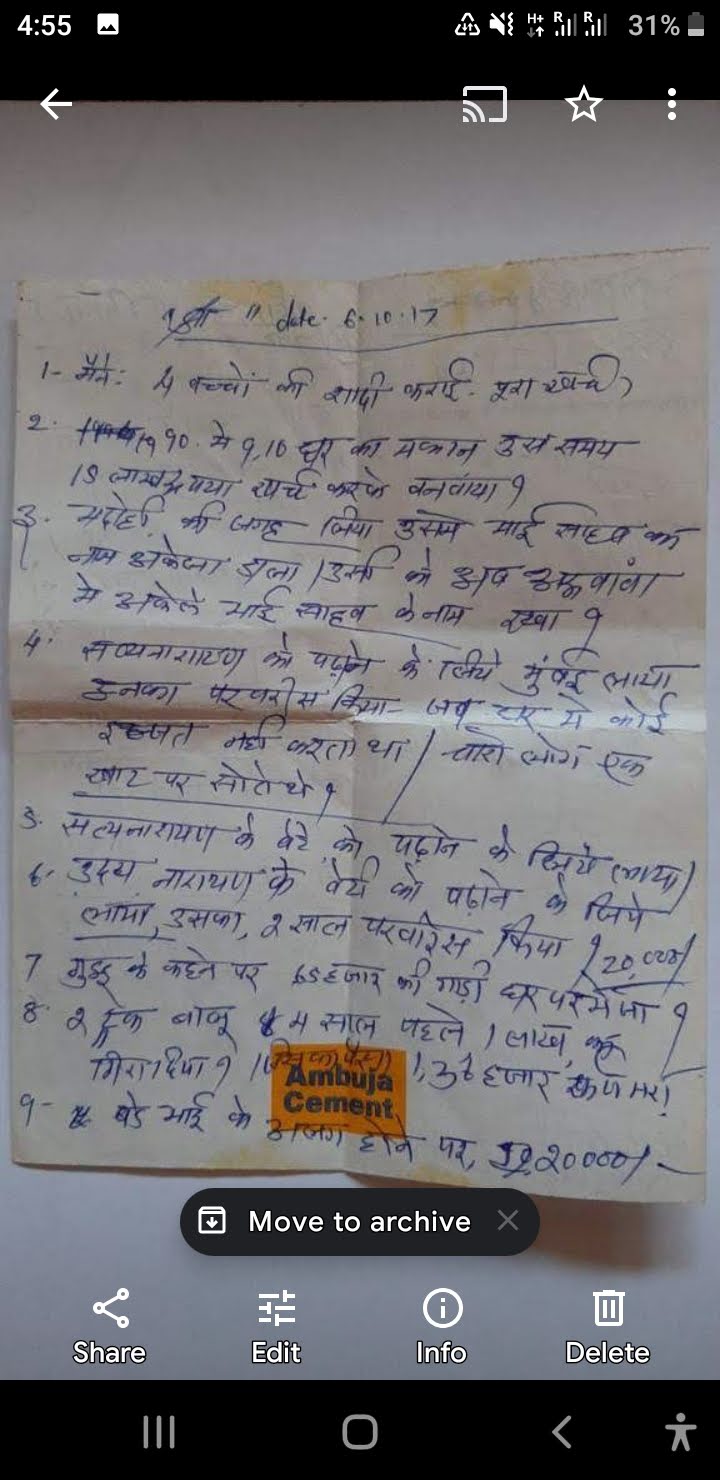 4:55
H+ R R 31%
श्री " date. 6.10.17
1- मैंने: 4 बच्चों की शादी कराई. पूरा खर्चा
2. 1990. मे 9,10 घूर का मकान उस समय
लाख रुपया खर्च करके बनवाया ?
3. की जगह लिया उसमे भाई साहब का
नाम अकेला डाला / उसी को अब
मे अकेले भाई साहब के नाम रखा ?
4. सत्यनारायण को पढ़ाने के लिये मुंबई लाया
उनका परवरीस किया- जब घर मे कोई
इज्जत नहीं करता था / चारो लोग एक
खाट पर सोते थे ?
5. सत्यनारायण के बेटे को पढ़ाने के लिये लाया
6- उदय नारायण के बेटी को पढ़ाने के लिये
लाया, उसका, 2 साल परवरिस किया ? 20,000/
7 गुड्डू के कहने पर 65 हजार की गाड़ी घर पर भेजा ?
8. 2 ट्रक बालू साल पहले 1 लाख,
गिरा दिया ? हजार
Ambuja
Cement
9- बडे भाई के अलग होने पर, 20000/-
Move to archive
Share Edit Info Delete